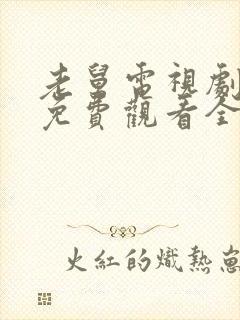 老舅電視劇
免費觀看全
火紅的熾熱